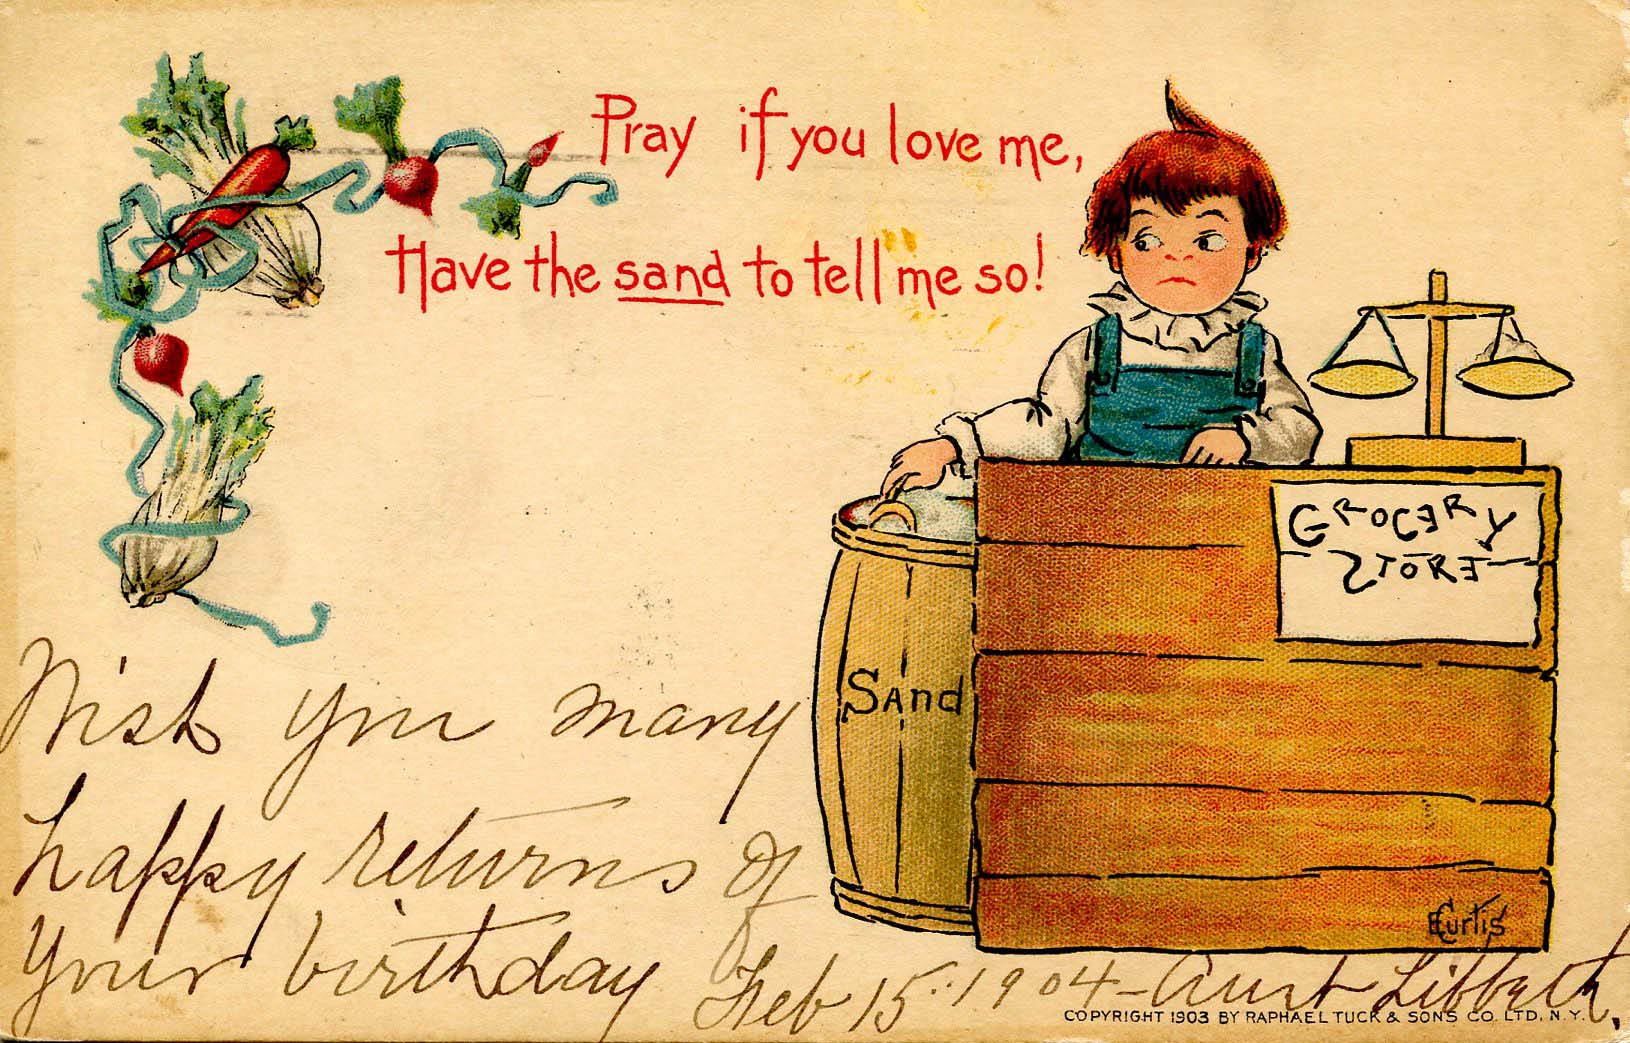 Pray if you love me,
Have the sand to tell me so!
GROCERY
STORE
SAnd
ECurtis
Wish you many
happy returns of
your birthday Feb 15. 1904 - Aunt Libbeth.
COPYRIGHT 1903 BY RAPHAEL TUCK & SONS CO. LTD, N.Y.